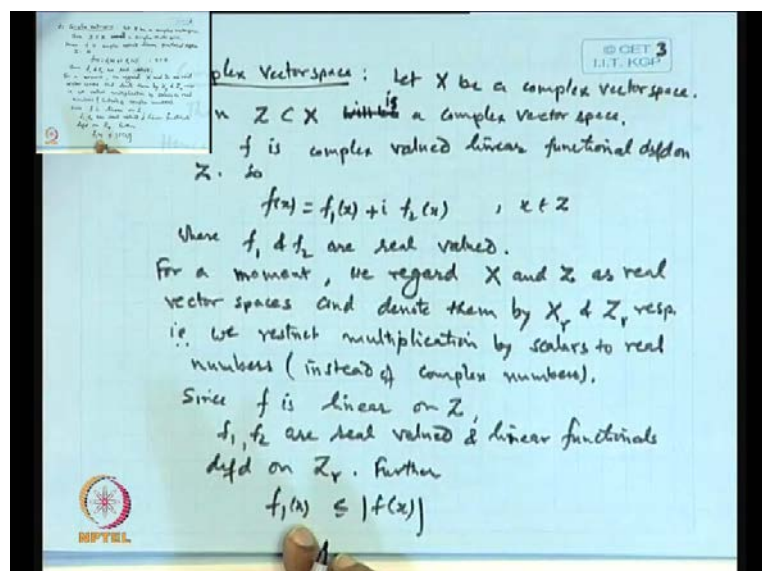 © CET 3
I.I.T. KGP
plex Vector space : Let X be a complex vector space.
n Z ⊂ X is a complex vector space.
f is complex valued linear functional defd on
Z. So
f(x) = f₁(x) + i f₂(x) , x ∈ Z
where f₁ & f₂ are real valued.
For a moment, we regard X and Z as real
vector spaces and denote them by Xᵣ & Zᵣ resp.
ie we restrict multiplication by scalars to real
numbers (instead of complex numbers).
Since f is linear on Z,
f₁, f₂ are real valued & linear functionals
defd on Zᵣ. Further
f₁(x) ≤ |f(x)|
NPTEL